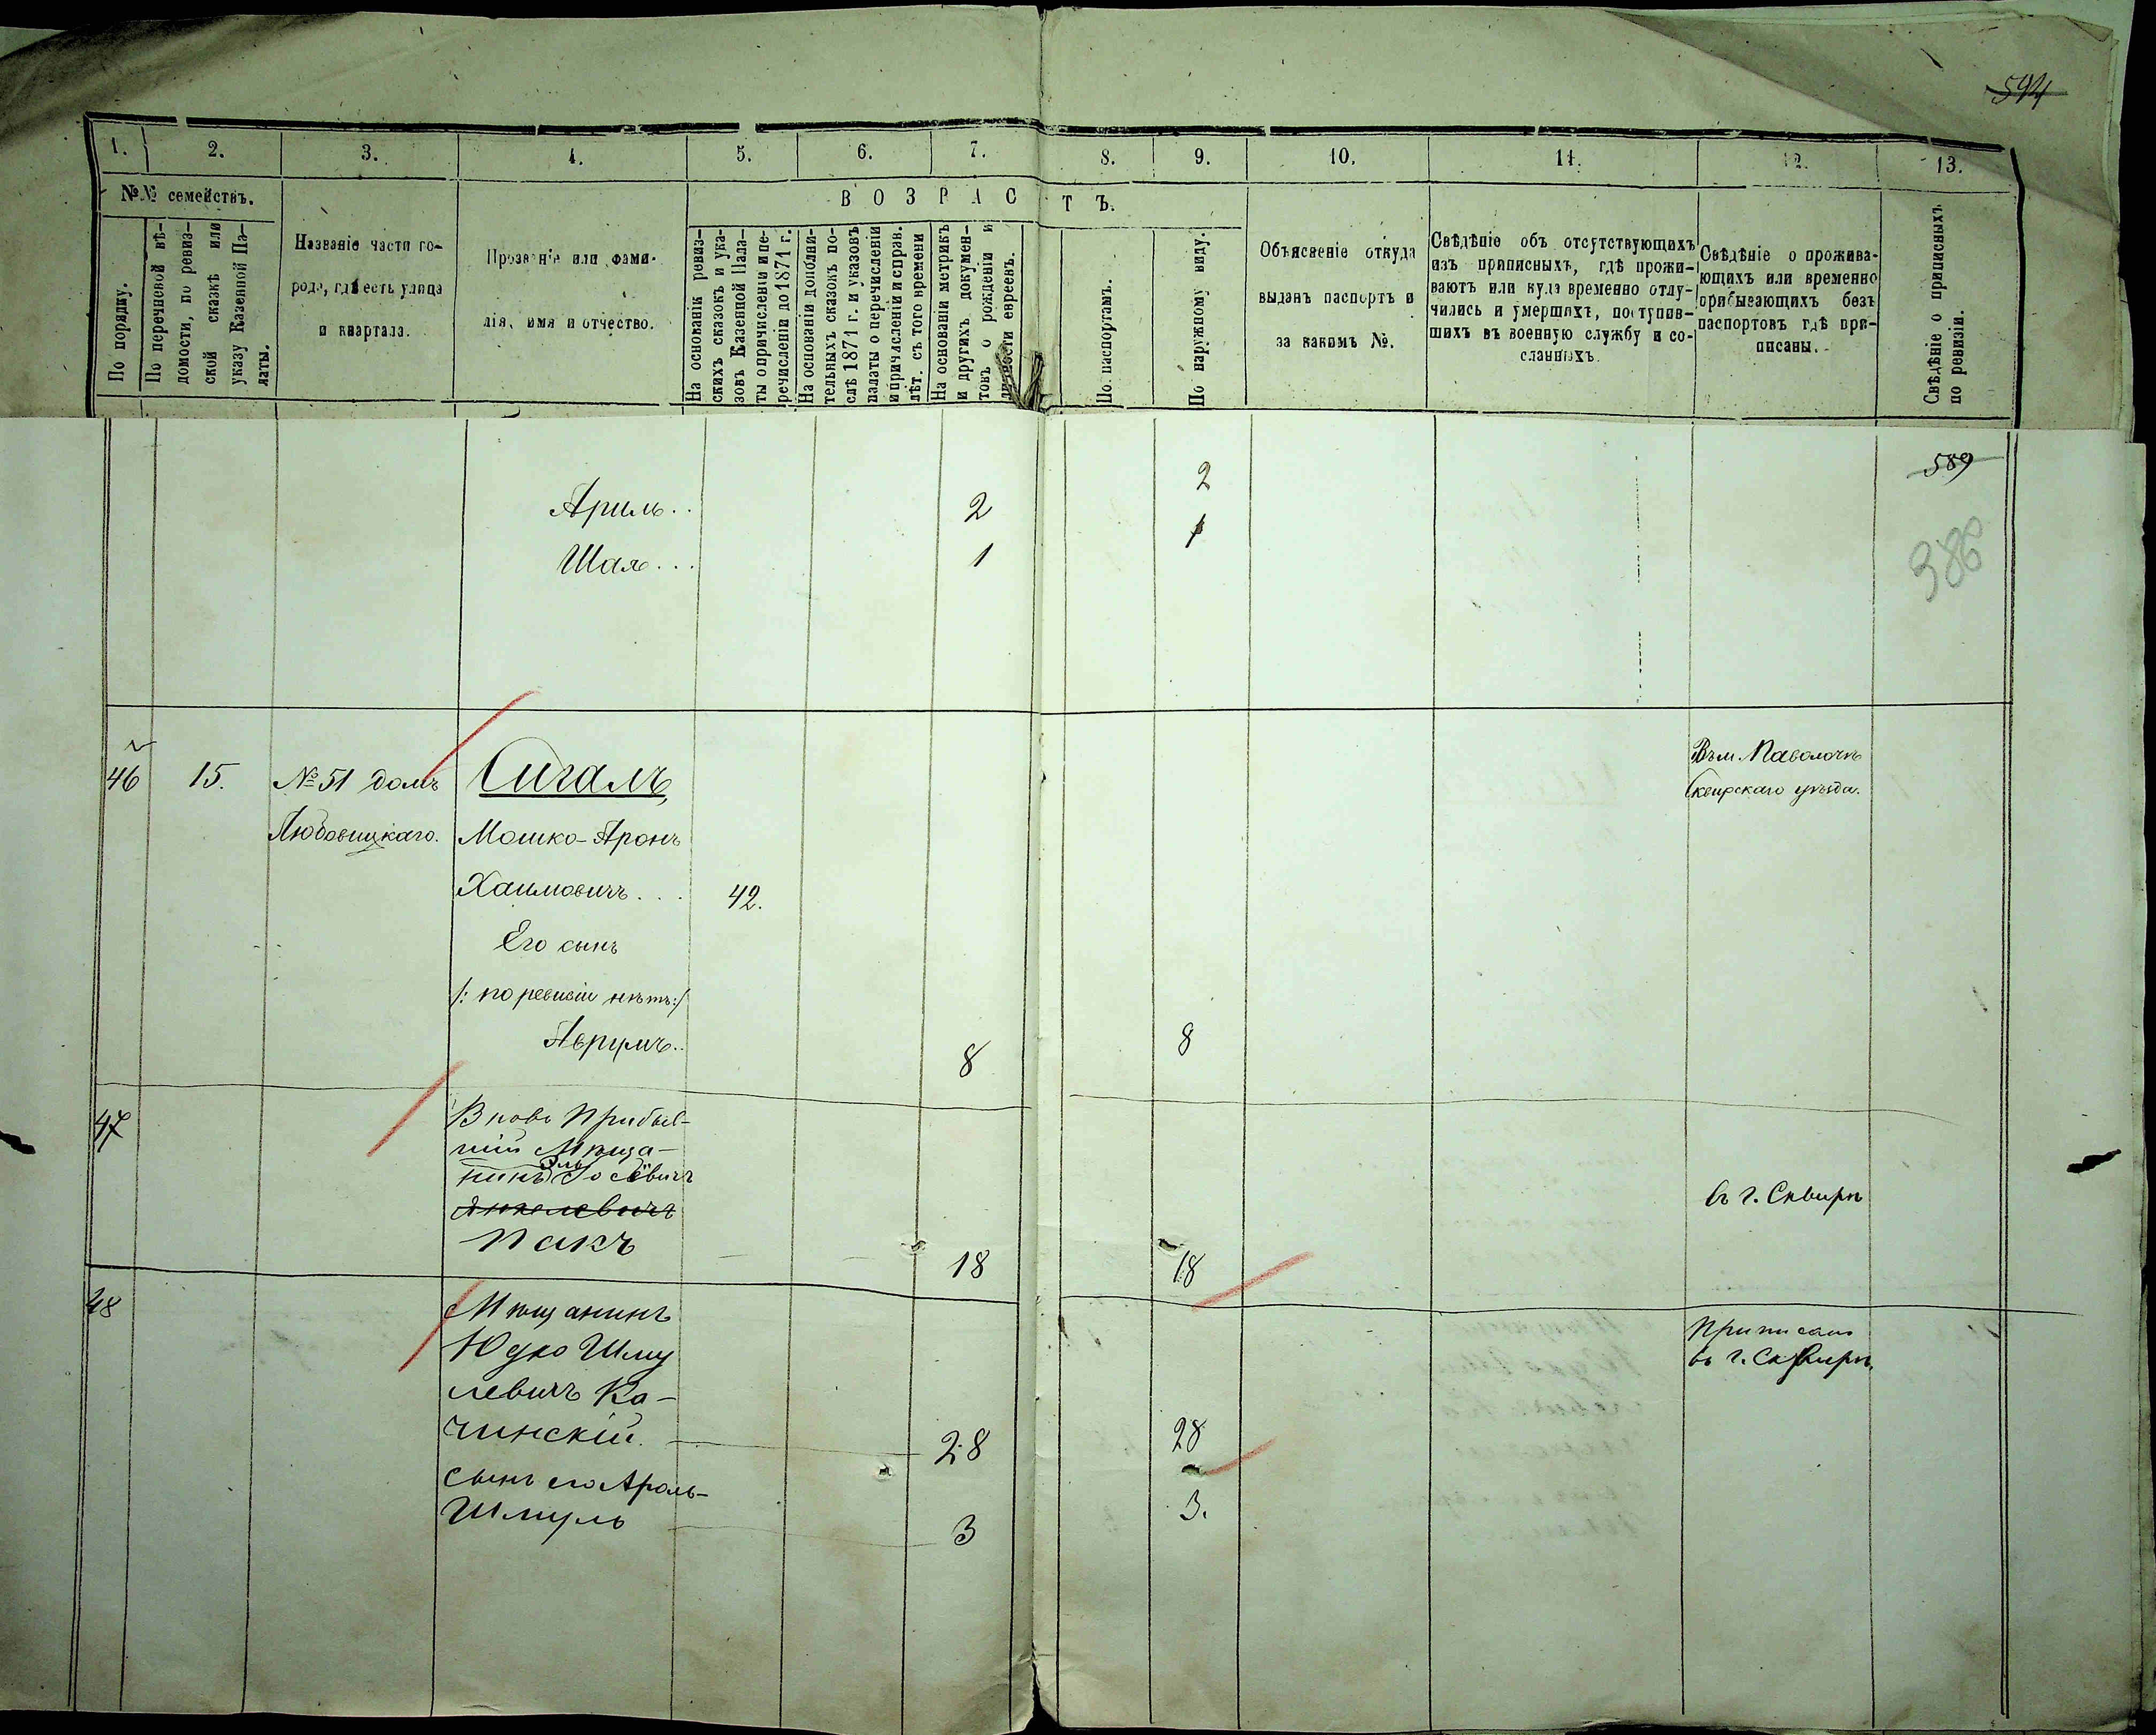 594
1. 2. 3. 4. 5. 6. 7. 8. 9. 10. 11. 12. 13.
№№ семействъ.
В О З Р А С Т Ъ.
По порядку.
По перечневой вѣ-
домости, по ревиз-
ской сказкѣ или
указу Казенной Па-
латы.
Названіе части го-
рода, гдѣ есть улица
и квартала.
Прозваніе или фами-
лія, имя и отчество.
На основаніи ревиз-
скихъ сказокъ и ука-
зовъ Казенной Пала-
ты о причисленіи и пе-
речисленіи до 1871 г.
На основаніи дополни-
тельныхъ сказокъ по-
слѣ 1871 г. и указовъ
палаты о перечисленіи
и причисленіи и справ.
лѣт. съ того времени
На основаніи метрикъ
и другихъ докумен-
товъ о рожденіи и
личности евреевъ.
По паспортамъ.
По наружному виду.
Объясненіе откуда
выданъ паспортъ и
за какимъ №.
Свѣдѣніе объ отсутствующихъ
изъ приписныхъ, гдѣ прожи-
ваютъ или куда временно отлу-
чились и умершихъ, поступив-
шихъ въ военную службу и со-
сланныхъ.
Свѣдѣніе о прожива-
ющихъ или временно
прибывающихъ безъ
паспортовъ гдѣ при-
писаны.
Свѣдѣніе о приписныхъ
по ревизіи.
589
386
Ариль.. 2 2
Шая... 1 1
46 15. №51 домъ Сигалъ, Въ м. Паволочь
Сквирскаго уѣзда.
Любовицкаго. Мошко-Аронъ
Хаимовичъ... 42.
Его сынъ
/: по ревизіи нѣтъ:/
Аврумъ.. 8 8
47 Вновь Прибыв-
шій Мѣща-
нинъ Эль Іосевичъ
Янкелевичъ въ г. Сквирѣ
Пакъ 18 18
48 Мѣщанинъ Приписанъ
Юдко Шму въ г. Сквирѣ
левичъ Ка-
чинскій. 28 28
сынъ его Ароль-
Шмуль 3 3.